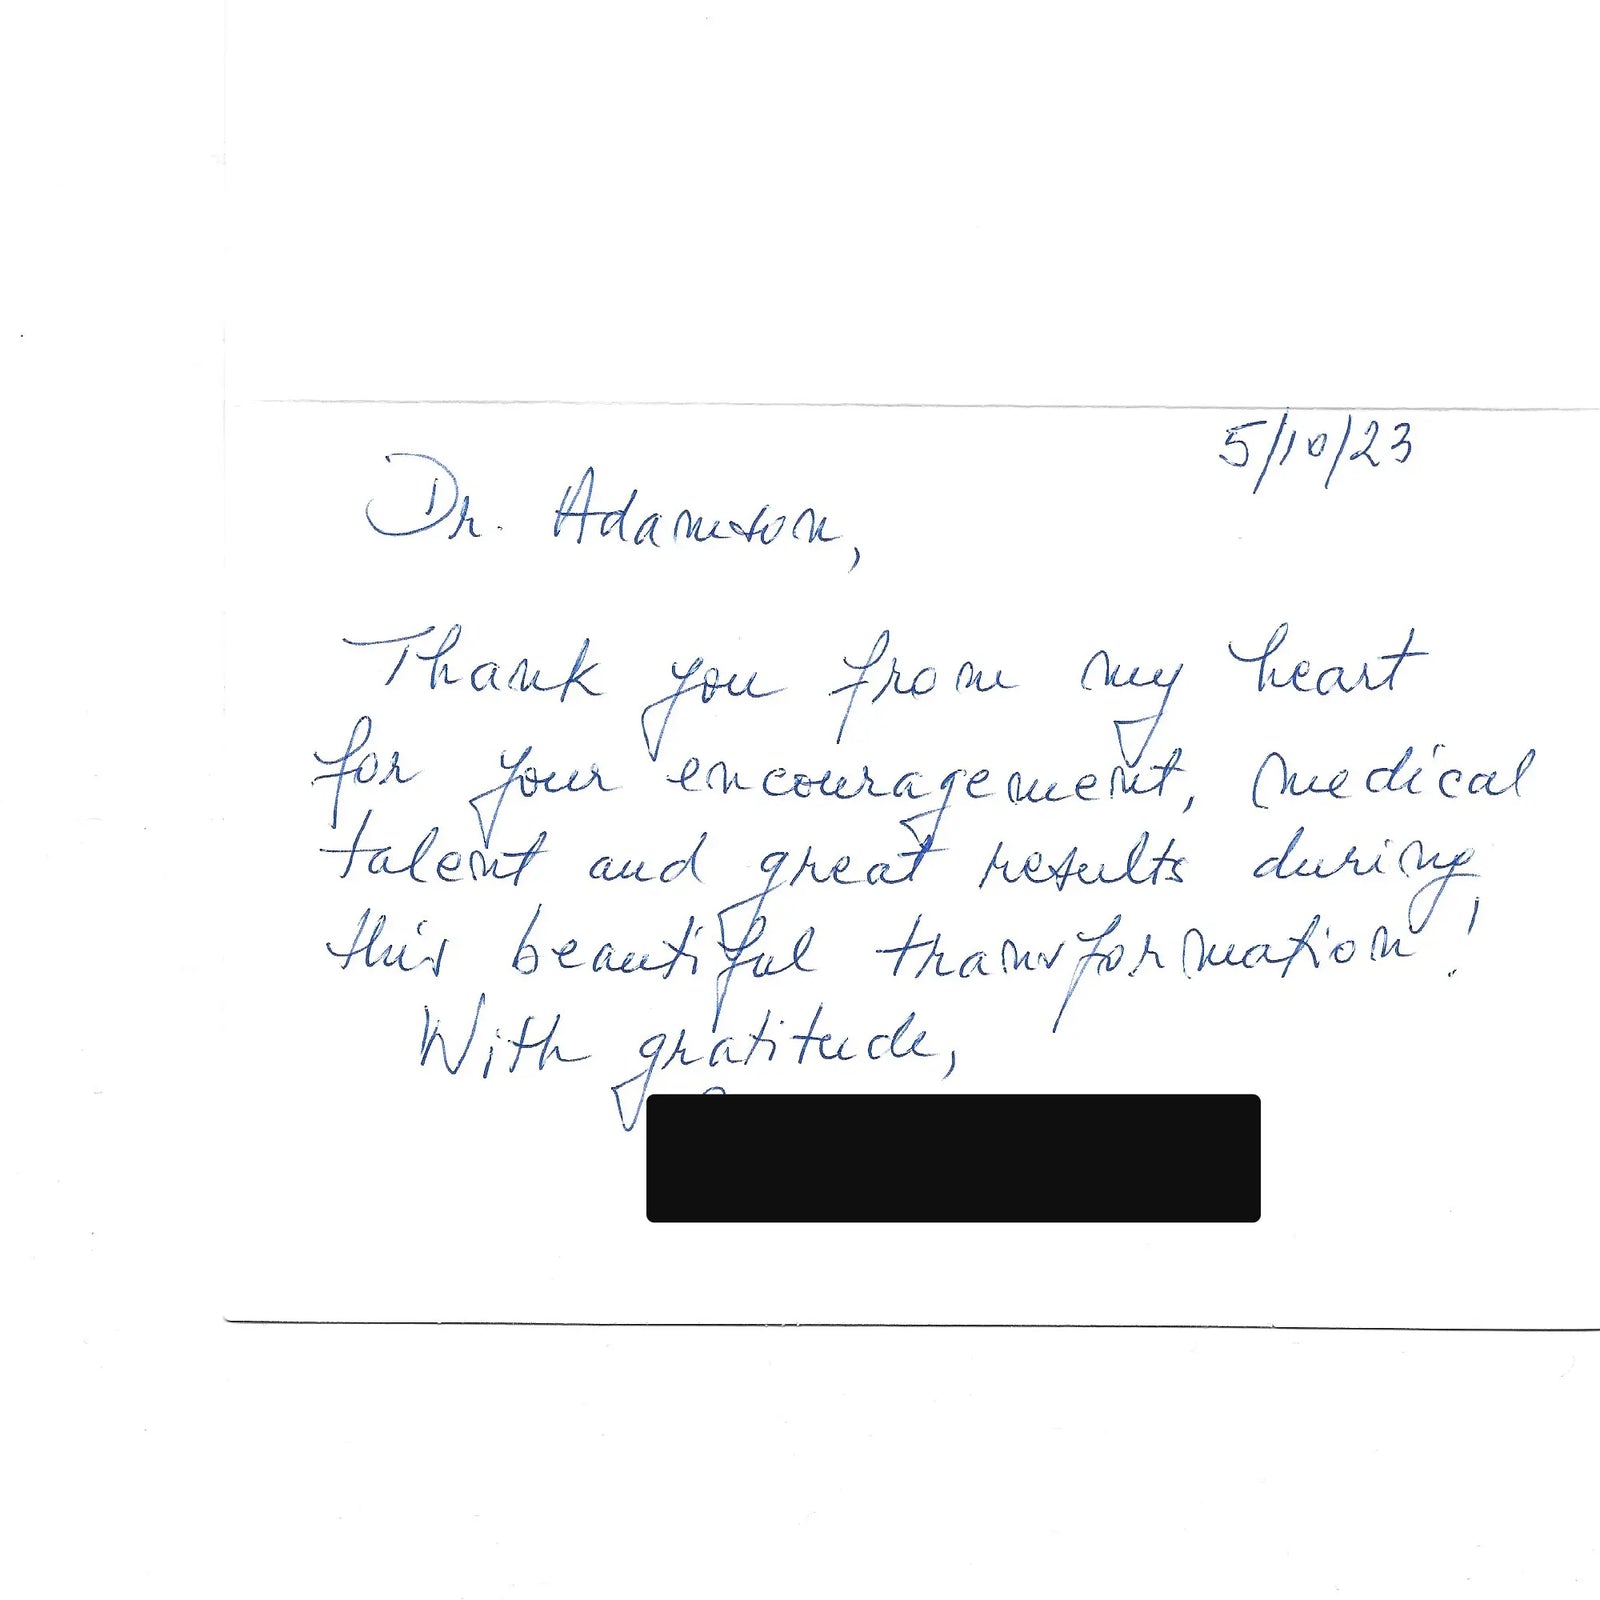 5/10/23
Dr. Adamson,
Thank you from my heart
for your encouragement, medical
talent and great results during
this beautiful transformation!
With gratitude,